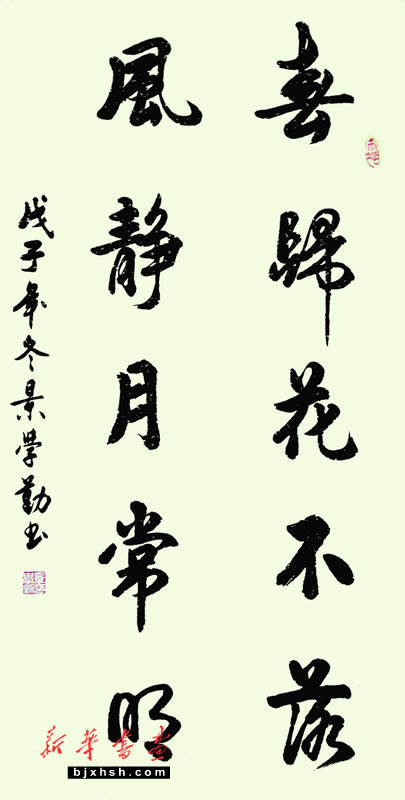 春歸花不落
風静月常明
戊子年冬景學勤书
新華書畫
bjxhsh.com